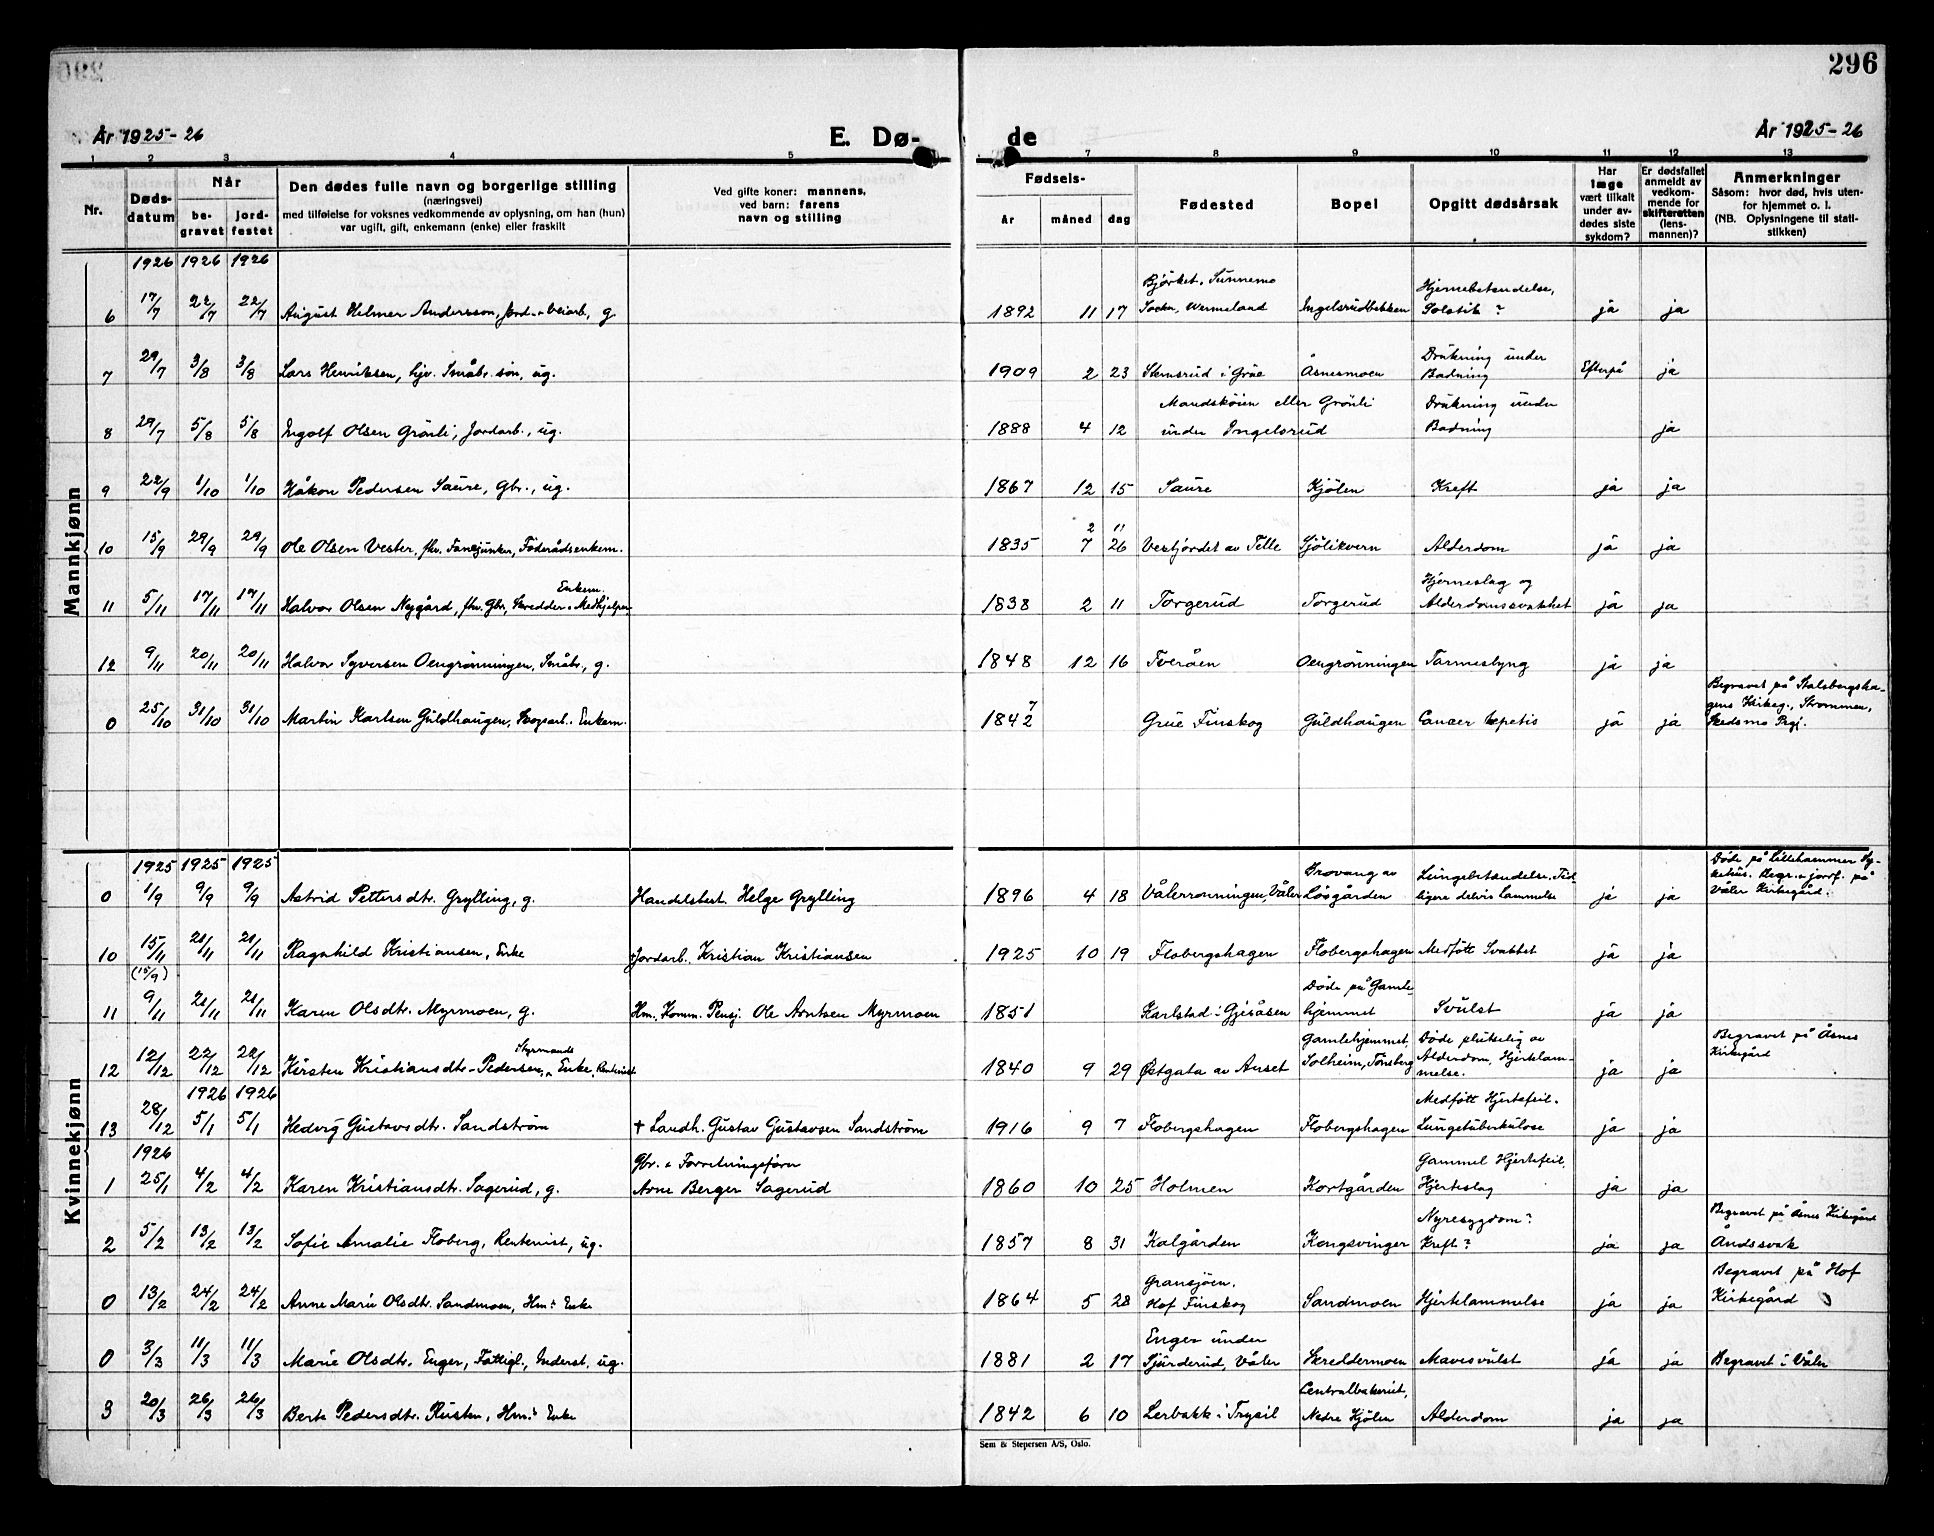 296
År 1925-26
E. Dø-
de
År 1925-26
1 2 3 4 5 7 8 9 10 11 12 13
Nr.
Døds-
datum
Når
be-
gravet
jord-
festet
Den dødes fulle navn og borgerlige stilling
(næringsvei)
med tilføielse for voksnes vedkommende av oplysning, om han (hun)
var ugift, gift, enkemann (enke) eller fraskilt
Ved gifte koner: mannens,
ved barn: farens
navn og stilling
Fødsels-
år måned dag
Fødested
Bopel
Opgitt dødsårsak
Har
læge
vært tilkalt
under av-
dødes siste
sykdom?
Er dødsfallet
anmeldt av
vedkom-
mende for
skifteretten
(lens-
mannen)?
Anmerkninger
Såsom: hvor død, hvis uten-
for hjemmet o. l.
(NB. Oplysningene til stati-
stikken)
Mannkjønn
1926 1926 1926
6 17/7 22/7 22/7 August Helmer Andersson, Jord- o. veiarb., g. 1892 11 17 Bjørket, Sunnemo
Sockn, Wermeland Ingelsrudbekken Hjernebetendelse,
Solstik? ja ja
7 29/7 3/8 3/8 Lars Henriksen, hjv. Småbr. søn, ug. 1909 2 23 Stemsrud i Grue Åsnesmoen Drukning under
Badning Efterpå ja
8 29/7 5/8 5/8 Ingolf Olsen Grønli, Jordarb., ug. 1888 4 12 Mandskøien eller Grönli
under Ingelsrud Drukning under
Badning ja
9 22/9 1/10 1/10 Håkon Pedersen Saure, Gbr., ug. 1867 12 15 Saure Kjölen Kreft ja ja
10 15/9 29/9 29/9 Ole Olsen Vester, fhv. Fanejunker, Föderådsenkem. 1835 2 11
7 26 Vestjordet av Telle Sjölikvern Alderdom ja ja
11 5/11 17/11 17/11 Halvor Olsen Nygård, fhv. Gbr., Skredder o. Medhjelper Enkem. 1838 2 11 Torgerud Torgerud Hjerneslag og
Alderdomssvakhet ja ja
12 9/11 20/11 20/11 Halvor Syversen Oengrönningen, Småbr., g. 1848 12 16 Tveråen Oengrönningen Tarmeslyng ja ja
0 25/10 31/10 31/10 Martin Karlsen Guldhaugen, Skogsarb. Enkem. 1842 7 Grue Finskog Guldhaugen Cancer hepatis ja ja Begravet på Stalsbergsha-
gens Kirkeg., Strømmen,
Skedsmo Pgj.
Kvinnekjønn
1925 1925 1925
0 1/9 9/9 9/9 Astrid Pettersdtr. Grylling, g. Handelsbest. Helge Grylling 1896 4 18 Vålerronningen, Våler Brovang av
Løsgården Lungebetendelse, Tid-
ligere delvis Lammelse ja ja Døde på Lillehammer Sy-
kehus. Begr. o. jordf. på
Våler Kirkegård.
10 15/11 21/11 21/11 Ragnhild Kristiansen, Enke +Jordarb. Kristian Kristiansen 1925 10 19 Flobergshagen Flobergshagen Medfött Svakhet ja ja
(15/9)
11 9/11 21/11 21/11 Karen Olsdtr. Myrmoen, g. Hm. Komm. Pensj. Ole Arntsen Myrmoen 1851 Karlstad i Gjesåsen Døde på Gamle-
hjemmet Svulst ja ja
12 12/12 22/12 22/12 Kirsten Kristiansdtr. Pedersen, Styrmands Enke, Rentenist 1840 9 29 Østgata av Anset Gamlehjemmet,
Solheim, Tönsberg Døde plutselig av
Alderdom, Hjertelam-
melse. ja ja Begravet på Åsnes
Kirkegård
1926 1926
13 28/12 5/1 5/1 Hedvig Gustavsdtr. Sandström + Landh. Gustav Gustavsen Sandström 1916 9 7 Flobergshagen Flobergshagen Medfött Hjertefeil.
Lungetuberkulose ja ja
1926
1 25/1 4/2 4/2 Karen Kristiansdtr. Sagerud, g. Gbr. o. Forretningsfører
Arne Berger Sagerud 1860 10 25 Holmen Kortgården Gammel Hjertefeil,
Hjerteslag ja ja
2 5/2 13/2 13/2 Sofie Amalie Floberg, Rentenist, ug. 1857 8 31 Kalgården Kongsvinger Nyresygdom?
Kreft? ja ja Begravet på Åsnes Kirkegård
Åndssvak
0 13/2 24/2 24/2 Anne Marie Olsdtr. Sandmoen, Hm. Enke 1864 5 28 Gransjöen,
Hof Finskog Sandmoen Hjertelammelse ja ja Begravet på Hof
Kirkegård
0 3/3 11/3 11/3 Marie Olsdtr. Enger, Fattigl., Inderst, ug. 1881 2 17 Enger under
Sjurderud, Våler Skreddermoen Mavesvulst ja ja Begravet i Våler
3 20/3 26/3 26/3 Berte Pedersdtr. Rusten, Hm. Enke 1842 6 10 Lerbakk i Trysil Centralbakeriet,
Nedre Kjölen Alderdom ja ja
Sem & Stepersen A/S, Oslo.